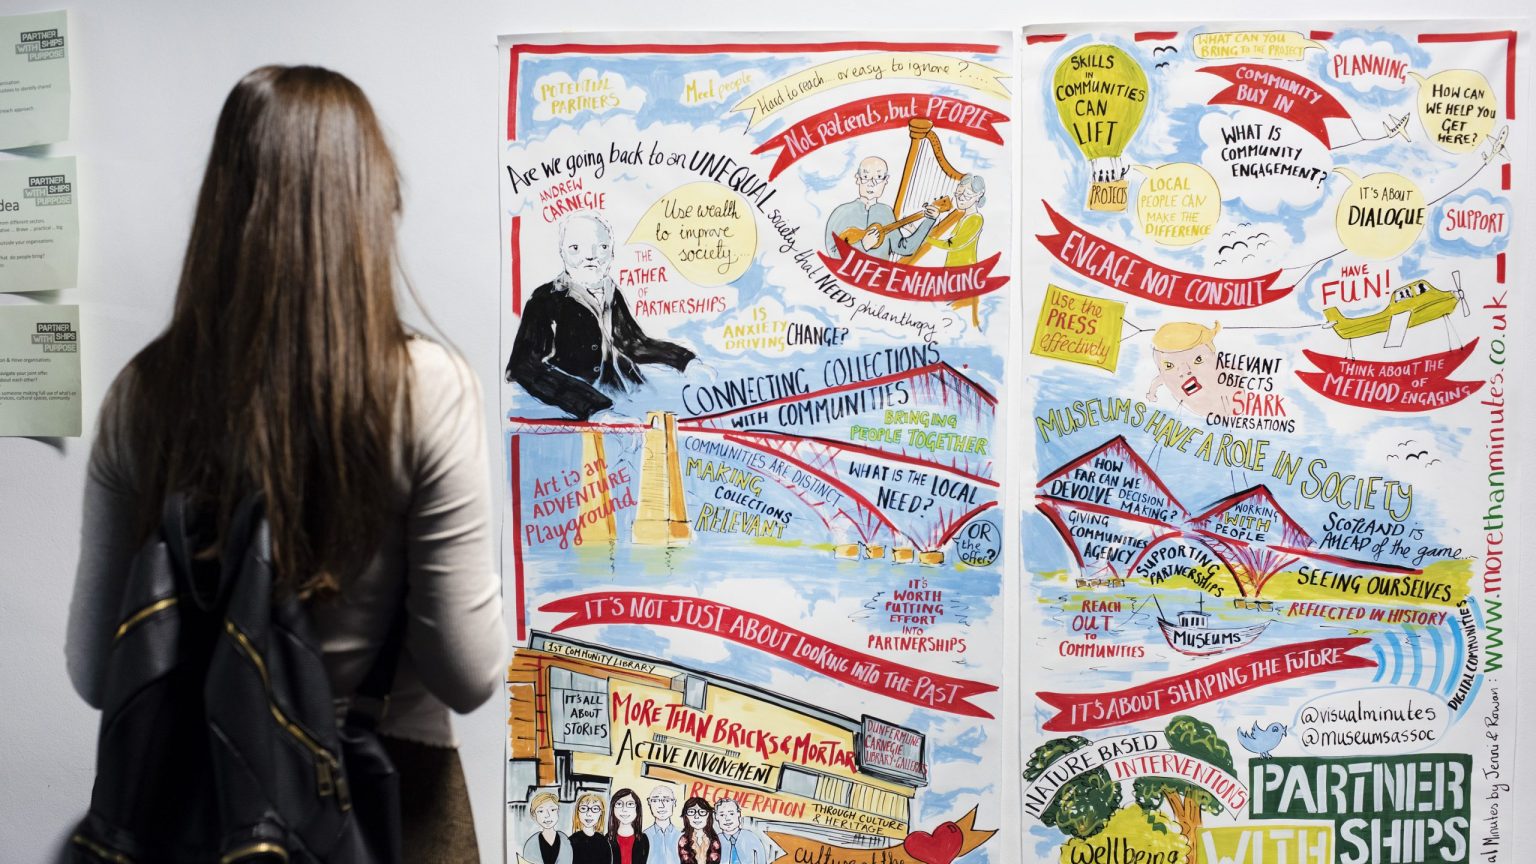 PARTNER
WITH SHIPS
PURPOSE
PARTNER
WITH SHIPS
PURPOSE
PARTNER
WITH SHIPS
PURPOSE
POTENTIAL
PARTNERS
Meet people
Hard to reach... or easy to ignore?....
Not patients, but PEOPLE
Are we going back to an UNEQUAL society that NEEDS philanthropy?
ANDREW
CARNEGIE
'Use wealth
to improve
society...
THE
FATHER
OF
PARTNERSHIPS
LIFE ENHANCING
IS
ANXIETY
DRIVING
CHANGE?
CONNECTING COLLECTIONS
WITH COMMUNITIES
BRINGING
PEOPLE TOGETHER
Art is an
ADVENTURE
Playground
COMMUNITIES ARE DISTINCT
MAKING
COLLECTIONS
RELEVANT
WHAT IS THE LOCAL
NEED?
OR
the
offer?
IT'S
WORTH
PUTTING
EFFORT
INTO
PARTNERSHIPS
IT'S NOT JUST ABOUT LOOKING INTO THE PAST
1ST COMMUNITY LIBRARY
IT'S ALL
ABOUT
STORIES
MORE THAN BRICKS & MORTAR
ACTIVE INVOLVEMENT
REGENERATION
THROUGH CULTURE
& HERITAGE
DUNFERMLINE
CARNEGIE
LIBRARY & GALLERIES
culture at the
SKILLS
IN
COMMUNITIES
CAN
LIFT
PROJECTS
WHAT CAN YOU
BRING TO THE PROJECT
COMMUNITY
BUY IN
PLANNING
HOW CAN
WE HELP YOU
GET
HERE?
WHAT IS
COMMUNITY
ENGAGEMENT?
LOCAL
PEOPLE CAN
MAKE THE
DIFFERENCE
IT'S ABOUT
DIALOGUE
SUPPORT
ENGAGE NOT CONSULT
HAVE
FUN!
USE THE
PRESS
effectively
RELEVANT
OBJECTS
SPARK
CONVERSATIONS
THINK ABOUT THE
METHOD OF
ENGAGING
MUSEUMS HAVE A ROLE IN SOCIETY
HOW
FAR CAN WE
DEVOLVE DECISION
MAKING?
GIVING
COMMUNITIES
AGENCY
WORKING
WITH
PEOPLE
SUPPORTING
PARTNERSHIPS
SCOTLAND is
AHEAD of the game...
SEEING OURSELVES
REFLECTED IN HISTORY
REACH
OUT
TO
COMMUNITIES
MUSEUMS
DIGITAL COMMUNITIES
IT'S ABOUT SHAPING THE FUTURE
@visualminutes
@museumsassoc
NATURE BASED
INTERVENTIONS
Wellbeing
PARTNER
WITH SHIPS
Minutes by Jenni & Rowan: www.morethanminutes.co.uk